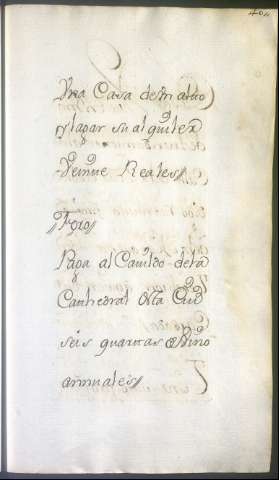 Una Casa de un alto
y lagar su alquiler
veinte Reales//
Foro//
Paga al Cavildo de la
Cathedral de sta Ciud
seis quartas de Vino
annuales//